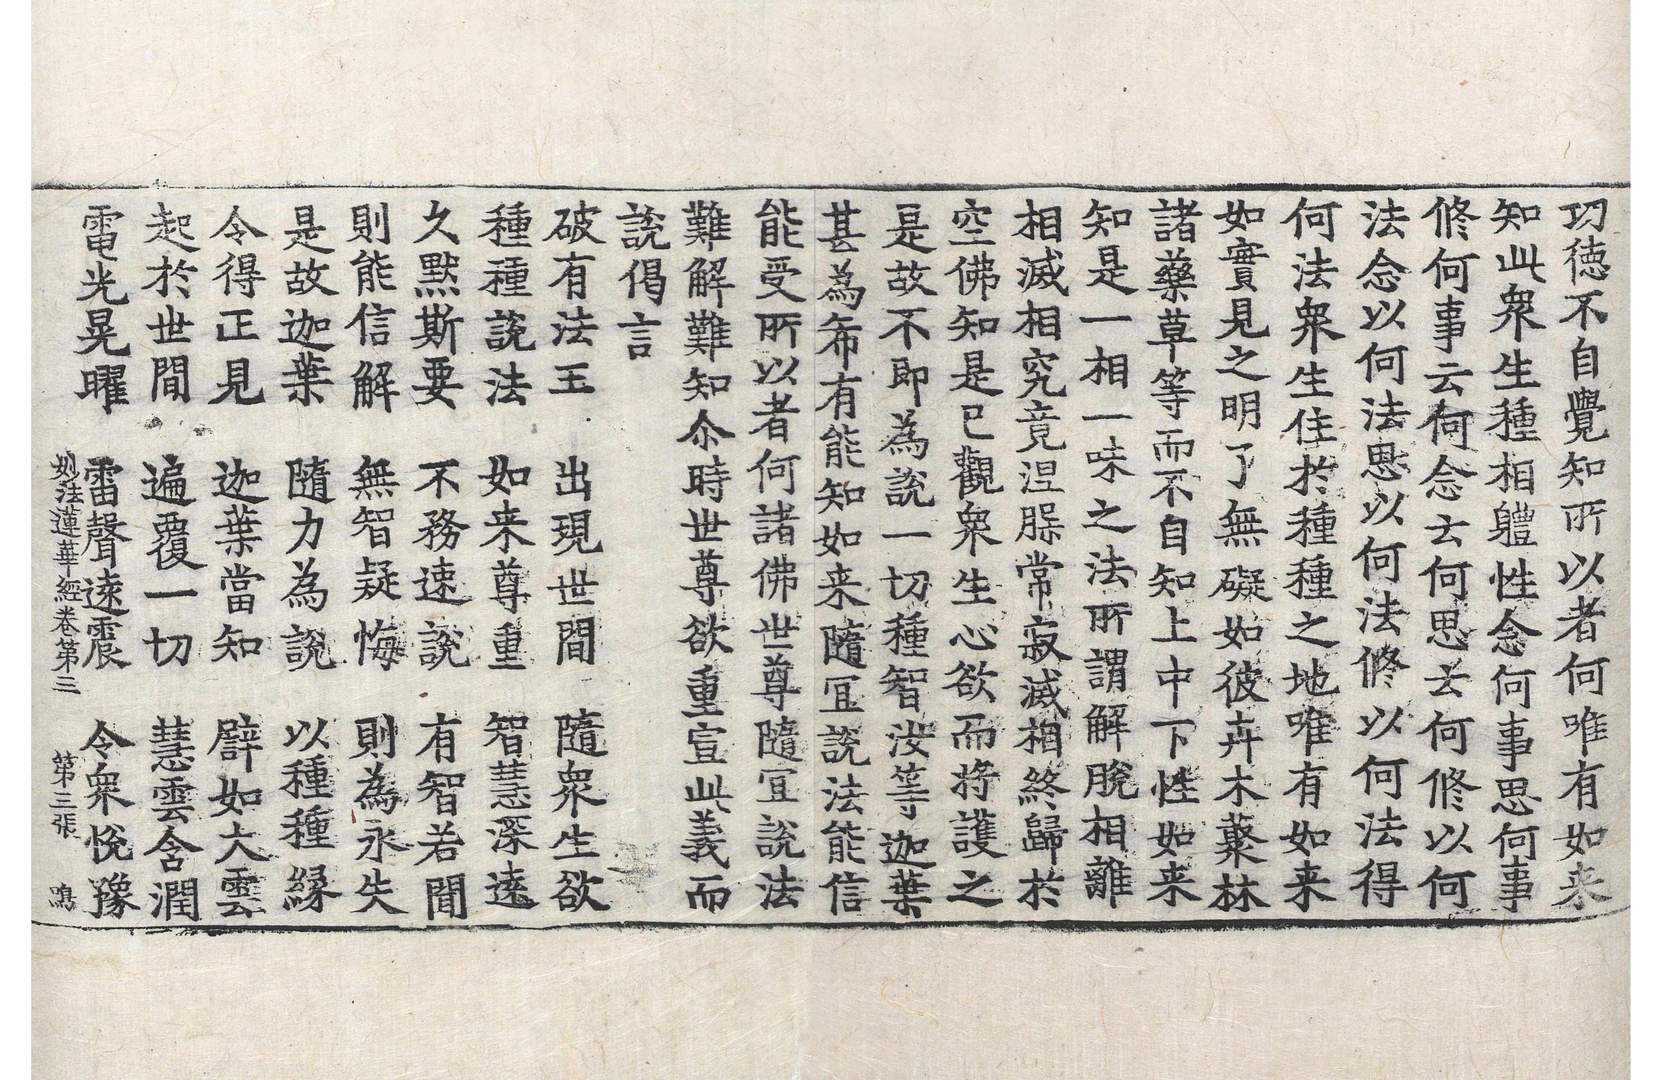 功德不自覺知所以者何唯有如来
知此衆生種相軆性念何事思何事
修何事云何念云何思云何修以何
法念以何法思以何法修以何法得
何法衆生住於種種之地唯有如来
如實見之明了無礙如彼卉木藂林
諸藥草等而不自知上中下性如来
知是一相一味之法所謂解脫相離
相滅相究竟涅槃常寂滅相終歸於
空佛知是已觀衆生心欲而將護之
是故不即為說一切種智汝等迦葉
甚為希有能知如来隨冝說法能信
能受所以者何諸佛世尊隨冝說法
難解難知尒時世尊欲重宣此義而
說偈言
破有法王 出現世間 隨衆生欲
種種說法 如来尊重 智慧深遠
久默斯要 不務速說 有智若聞
則能信解 無智疑悔 則為永失
是故迦葉 隨力為說 以種種緣
令得正見 迦葉當知 譬如大雲
起於世間 遍覆一切 慧雲含潤
電光晃曜 雷聲遠震 令衆悅豫
妙法蓮華經卷第三 第三張 鳴